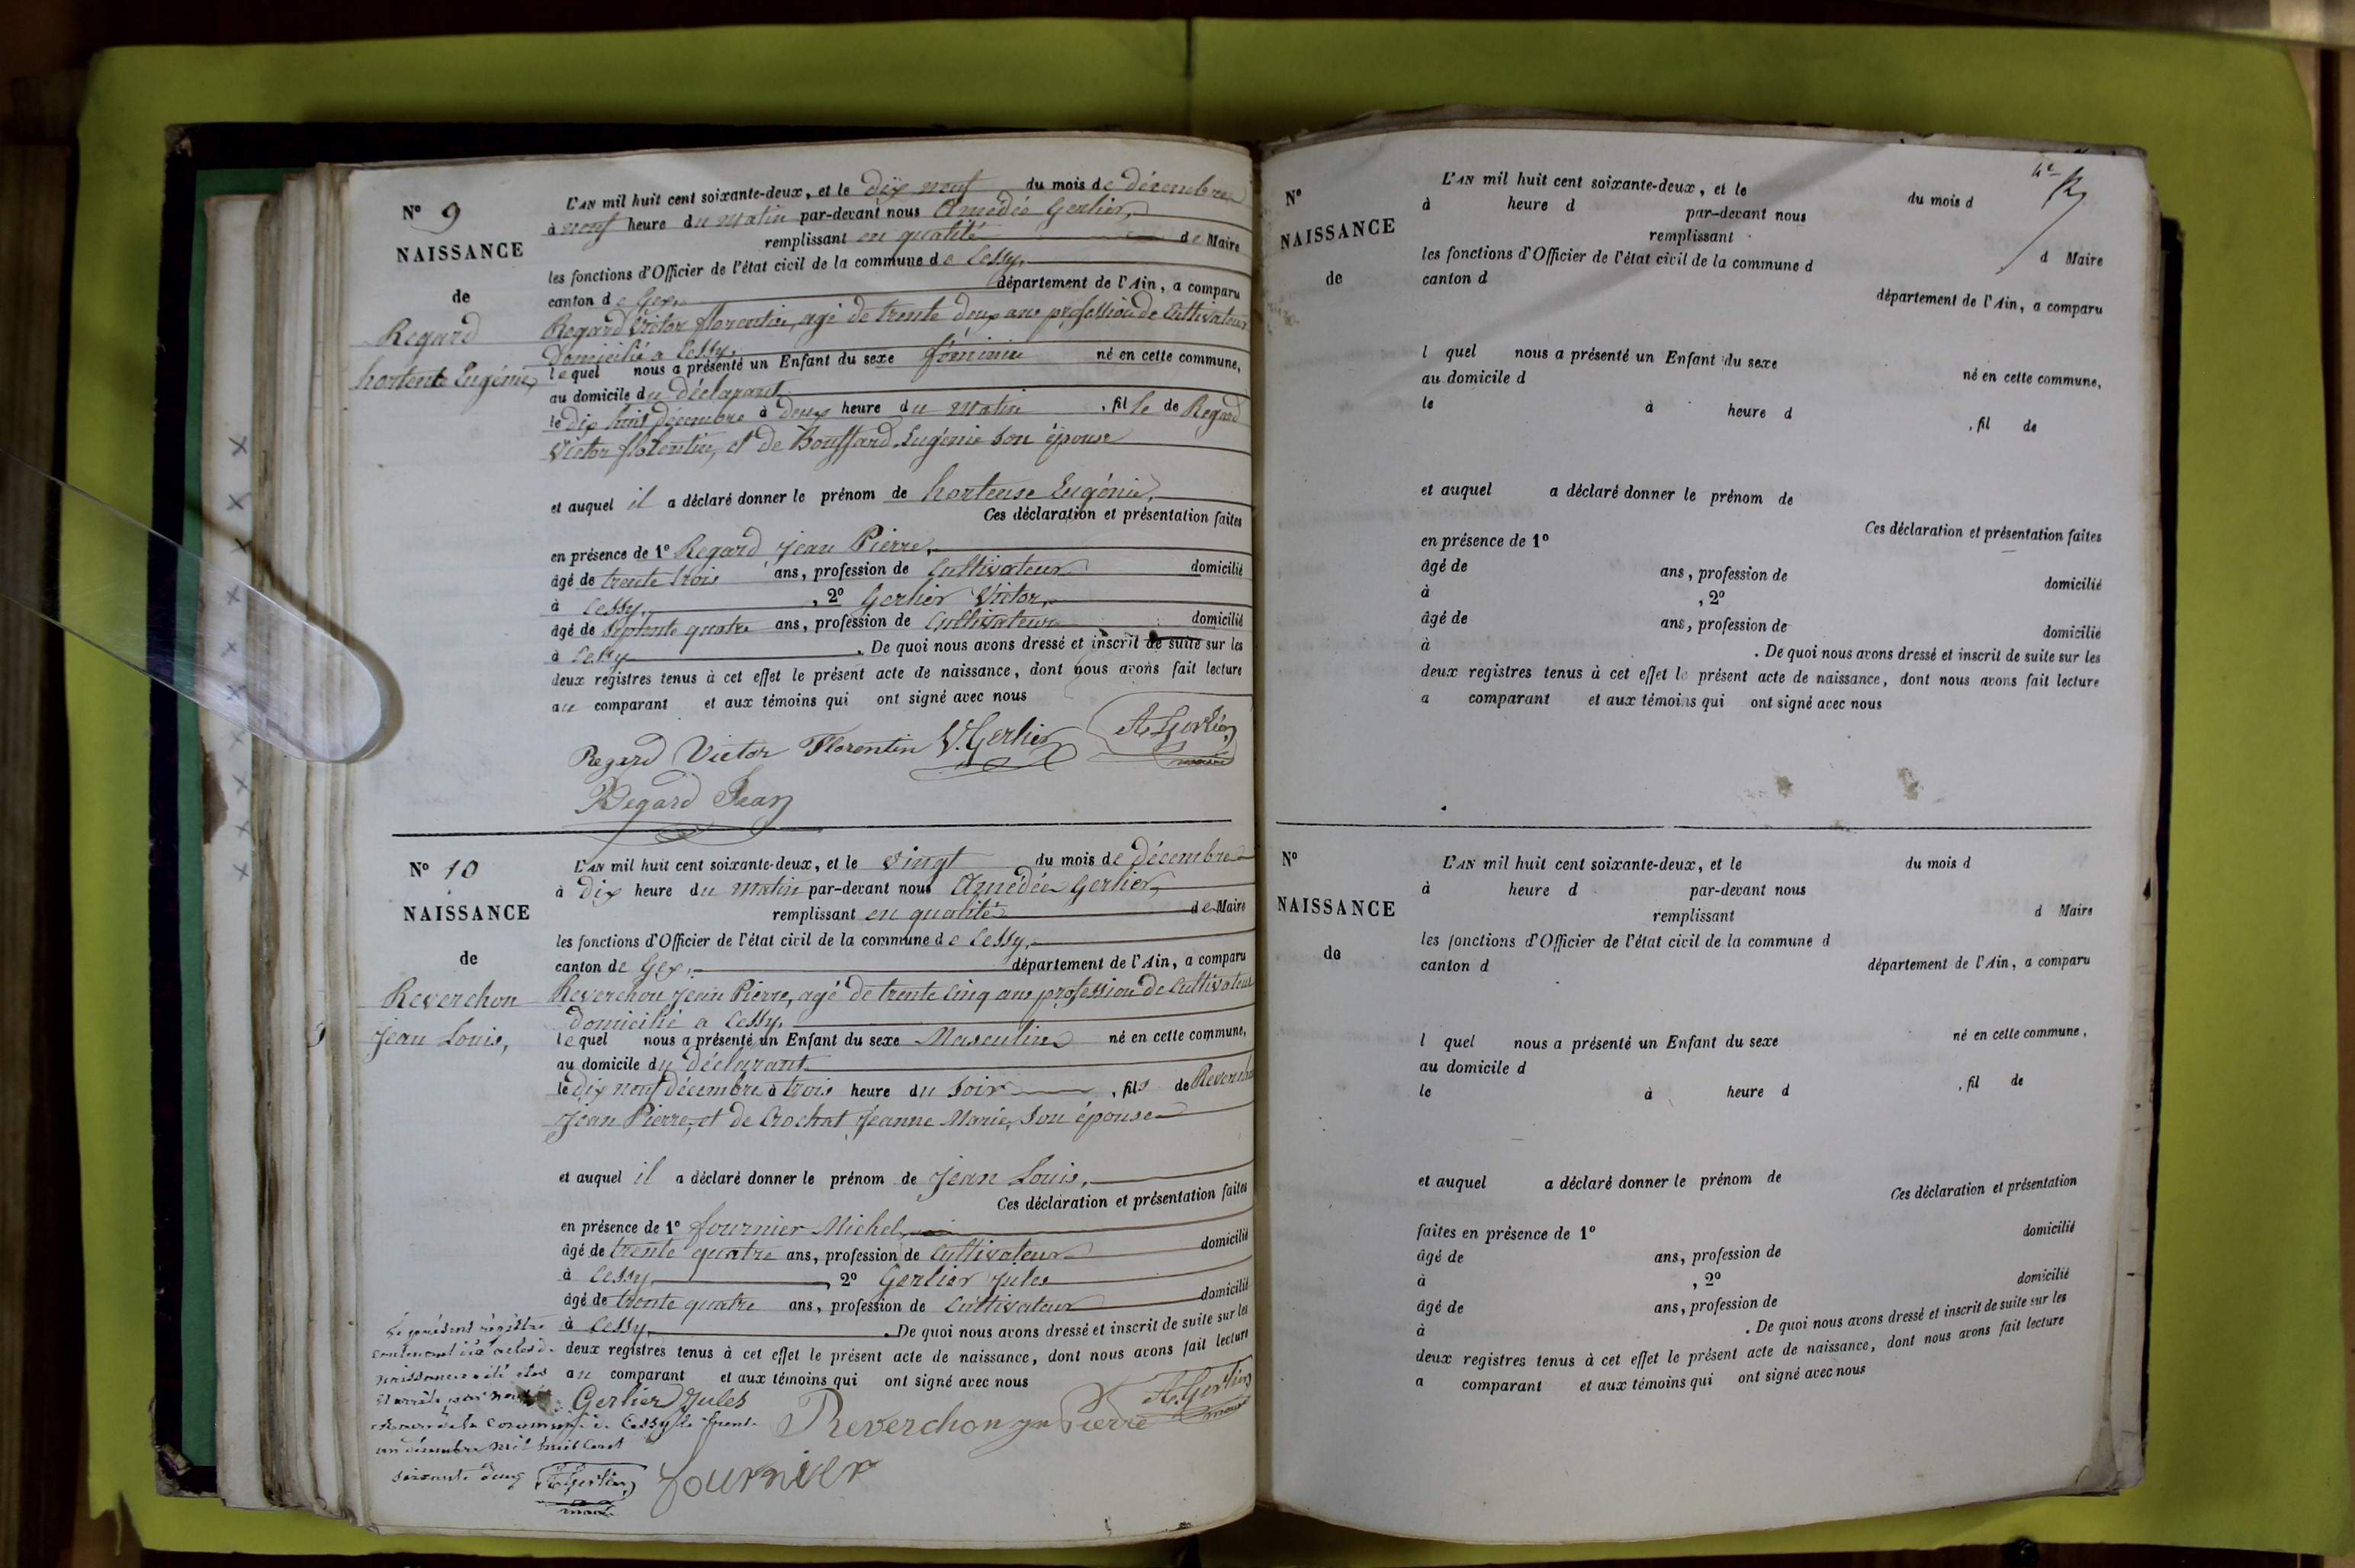 N° 9
NAISSANCE
de
Regard
hortense Eugénie,
L'AN mil huit cent soixante-deux, et le dix neuf du mois de décembre
à neuf heure du matin par-devant nous Amédée Gerlier,
remplissant en qualité de Maire
les fonctions d'Officier de l'état civil de la commune de Cessy,
canton de Gex, département de l'Ain, a comparu
Regard Victor florentin, agé de trente deux ans profession de Cultivateur
Domicilié a Cessy,
lequel nous a présenté un Enfant du sexe féminin né en cette commune,
au domicile du déclarant
le dix huit décembre à deux heure du matin, fille de Regard
Victor florentin, et de Bouffard Eugénie son épouse
et auquel il a déclaré donner le prénom de hortense Eugénie,
Ces déclaration et présentation faites
en présence de 1° Regard Jean Pierre,
âgé de trente trois ans, profession de Cultivateur domicilié
à Cessy, , 2° Gerlier Victor,
âgé de septente quatre ans, profession de Cultivateur domicilié
à Cessy . De quoi nous avons dressé et inscrit de suite sur les
deux registres tenus à cet effet le présent acte de naissance, dont nous avons fait lecture
au comparant et aux témoins qui ont signé avec nous
Regard Victor Florentin V. Gerlier A. Gerlier
maire
Regard Jean
N° 10
NAISSANCE
de
Reverchon
Jean Louis,
L'AN mil huit cent soixante-deux, et le vingt du mois de décembre
à dix heure du matin par-devant nous Amédée Gerlier,
remplissant en qualité de Maire
les fonctions d'Officier de l'état civil de la commune de Cessy,
canton de Gex, département de l'Ain, a comparu
Reverchon Jean Pierre, agé de trente cinq ans profession de Cultivateur
domicilié a Cessy,
lequel nous a présenté un Enfant du sexe Masculin né en cette commune,
au domicile du déclarant
le dix neuf décembre à trois heure du soir , fils de Reverchon
Jean Pierre, et de Crochat Jeanne Marie, son épouse
et auquel il a déclaré donner le prénom de Jean Louis,
Ces déclaration et présentation faites
en présence de 1° fournier Michel,
âgé de trente quatre ans, profession de Cultivateur domicilié
à Cessy, , 2° Gerlier Jules
âgé de trente quatre ans, profession de Cultivateur domicilié
à Cessy, . De quoi nous avons dressé et inscrit de suite sur les
deux registres tenus à cet effet le présent acte de naissance, dont nous avons fait lecture
au comparant et aux témoins qui ont signé avec nous
Gerlier Jules Reverchon jn Pierre A. Gerlier
maire
fournier
Le présent registre
contenant dix actes de
naissance a été clos
et arrêté par nous
maire de la commune de Cessy le trente
un décembre mil huit cent
soixante deux A. Gerlier
maire
N°
NAISSANCE
de
L'AN mil huit cent soixante-deux, et le du mois d
à heure d par-devant nous
remplissant d Maire
les fonctions d'Officier de l'état civil de la commune d
canton d département de l'Ain, a comparu
l quel nous a présenté un Enfant du sexe né en cette commune,
au domicile d
le à heure d , fil de
et auquel a déclaré donner le prénom de
Ces déclaration et présentation faites
en présence de 1°
âgé de ans, profession de domicilié
à , 2°
âgé de ans, profession de domicilié
à . De quoi nous avons dressé et inscrit de suite sur les
deux registres tenus à cet effet le présent acte de naissance, dont nous avons fait lecture
a comparant et aux témoins qui ont signé avec nous
N°
NAISSANCE
de
L'AN mil huit cent soixante-deux, et le du mois d
à heure d par-devant nous
remplissant d Maire
les fonctions d'Officier de l'état civil de la commune d
canton d département de l'Ain, a comparu
l quel nous a présenté un Enfant du sexe né en cette commune,
au domicile d
le à heure d , fil de
et auquel a déclaré donner le prénom de
Ces déclaration et présentation
faites en présence de 1° domicilié
âgé de ans, profession de
à , 2° domicilié
âgé de ans, profession de
à . De quoi nous avons dressé et inscrit de suite sur les
deux registres tenus à cet effet le présent acte de naissance, dont nous avons fait lecture
a comparant et aux témoins qui ont signé avec nous